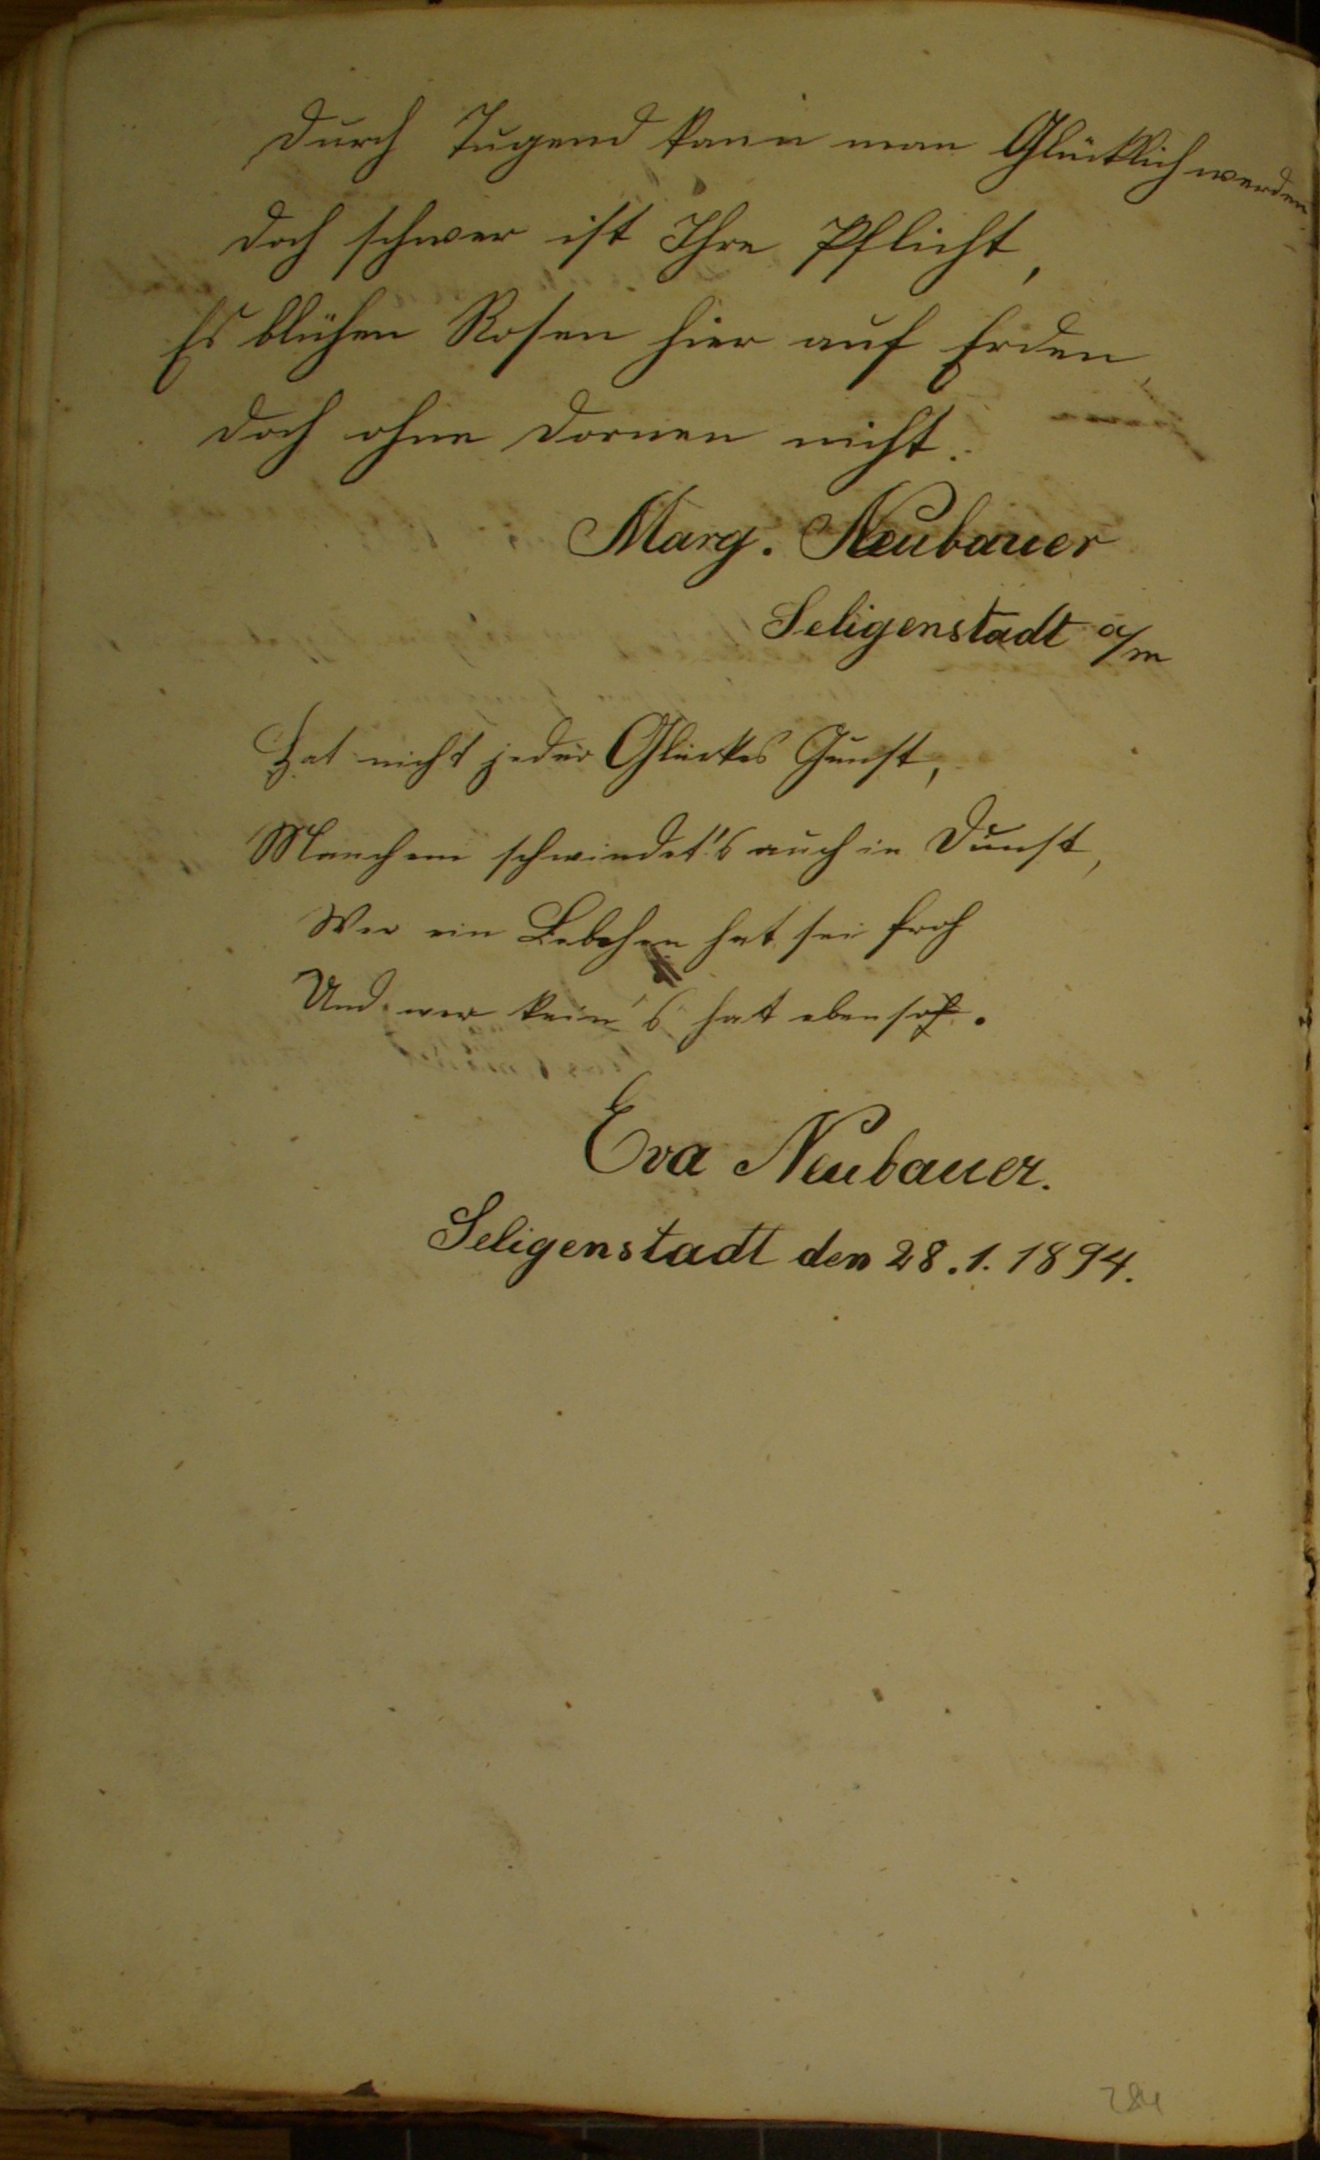 Durch Tugend kann man Glücklich werden
doch schwer ist Ihre Pflicht,
Es blühen Rosen hier auf Erden,
doch ohne Dornen nicht.
Marg. Neubauer
Seligenstadt a/m
Hat nicht jeder Glückes Gunst,
Manchem schwindet's auch in Dunst,
Wer ein hat sei froh
Und wer kein's hat ebenso.
Eva Neubauer.
Seligenstadt den 28.1.1894.
284